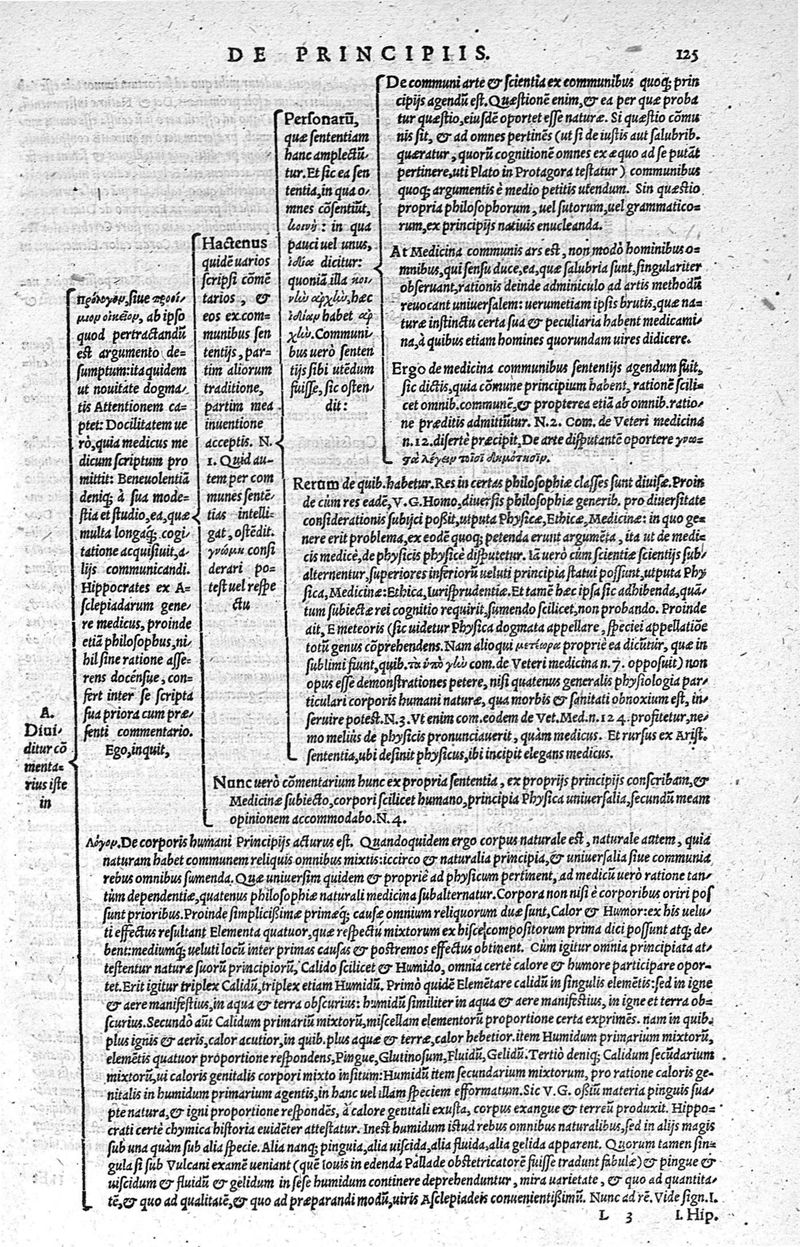 DE PRINCIPIIS. 125
A.
Diui-
ditur cō
menta-
rius iste
in
πρόλογον, siue προοί-
μιον οἰκεῖον, ab ipso
quod pertractandū
est argumento de-
sumptum: ita quidem
ut nouitate dogma-
tis Attentionem ca-
ptet: Docilitatem ue
rò, quia medicus me
dicum scriptum pro
mittit: Beneuolentiā
deniq; à sua mode-
stia et studio, ea, quæ
multa longaq; cogi-
tatione acquisiuit, a-
lijs communicandi.
Hippocrates ex A-
sclepiadarum gene
re medicus, proinde
etiā philosophus, ni-
hil sine ratione asse-
rens docensue, con-
fert inter se scripta
sua priora cum præ-
senti commentario.
Ego, inquit,
Hactenus
quidē uarios
scripsi cōmē
tarios, &
eos ex com-
munibus sen
tentijs, par-
tim aliorum
traditione,
partim mea
inuentione
acceptis. N.
1. Quid au-
tem per com
munes sentē-
tias intelli-
gat, ostēdit.
γνώμη consi
derari po-
test uel respe
ctu
Personarū,
quæ sententiam
hanc amplectū-
tur. Et sic ea sen
tentia, in qua o-
mnes cōsentiūt,
κοινὴ: in qua
pauci uel unus,
ἰδίαι dicitur:
quoniā, illa κοι-
νὼ ἀρχὼ, hæc
ἰδίαν habet ἀρ
χὼ. Communi-
bus uerò senten
tijs sibi utēdum
fuisse, sic osten
dit:
De communi arte & scientia ex communibus quoq; prin
cipijs agendū est. Quæstionē enim, & ea per quæ proba
tur quæstio, eiusdē oportet esse naturæ. Si quæstio cōmu
nis sit, & ad omnes pertinēs (ut si de iustis aut salubrib.
quæratur, quorū cognitionē omnes ex æquo ad se putāt
pertinere, uti Plato in Protagora testatur) communibus
quoq; argumentis è medio petitis utendum. Sin quæstio
propria philosophorum, uel sutorum, uel grammatico-
rum, ex principijs natiuis enucleanda.
At Medicina communis ars est, non modò hominibus o-
mnibus, qui sensu duce, ea, quæ salubria sunt, singulariter
obseruant, rationis deinde adminiculo ad artis methodū
reuocant uniuersalem: uerumetiam ipsis brutis, quæ na-
turæ instinctu certa sua & peculiaria habent medicami-
na, à quibus etiam homines quorundam uires didicere.
Ergo de medicina communibus sententijs agendum fuit,
sic dictis, quia cōmune principium habent, rationē scili-
cet omnib. communē, & propterea etiā ab omnib. ratio-
ne præditis admittūtur. N. 2. Com. de Veteri medicina
n. 12. disertè præcipit, De arte disputantē oportere γνω-
στὰ λέγειν τοῖσι δημότῃσιν.
Rerum de quib. habetur. Res in certas philosophiæ classes sunt diuisæ. Proin
de cùm res eadē, V. G. Homo, diuersis philosophiæ generib. pro diuersitate
considerationis subijci possit, utputa Physicæ, Ethicæ, Medicinæ: in quo ge-
nere erit problema, ex eodē quoq; petenda erunt argumēta, ita ut de medi-
cis medicè, de physicis physicè disputetur. Iā uerò cùm scientiæ scientijs sub-
alternentur, superiores inferiorū ueluti principia statui possunt, utputa Phy
sica, Medicinæ: Ethica, Iurisprudentiæ. Et tamē hæc ipsa sic adhibenda, quā-
tum subiectæ rei cognitio requirit, sumendo scilicet, non probando. Proinde
ait, E meteoris (sic uidetur Physica dogmata appellare, speciei appellatiōe
totū genus cōprehendens. Nam alioqui μετέωρα propriè ea dicūtur, quæ in
sublimi fiunt, quib. τὰ ὑπὸ γλῶ com. de Veteri medicina n. 7. opposuit) non
opus esse demonstrationes petere, nisi quatenus generalis physiologia par-
ticulari corporis humani naturæ, qua morbis & sanitati obnoxium est, in-
seruire potest. N. 3. Vt enim com. eodem de Vet. Med. n. 124. profitetur, ne-
mo meliùs de physicis pronunciauerit, quàm medicus. Et rursus ex Arist.
sententia, ubi desinit physicus, ibi incipit elegans medicus.
Nunc uerò cōmentarium hunc ex propria sententia, ex proprijs principijs conscribam, &
Medicinæ subiecto, corpori scilicet humano, principia Physica uniuersalia, secundū meam
opinionem accommodabo. N. 4.
Λόγον. De corporis humani Principijs acturus est. Quandoquidem ergo corpus naturale est, naturale autem, quia
naturam habet communem reliquis omnibus mixtis: iccirco & naturalia principia, & uniuersalia siue communia
rebus omnibus sumenda. Quæ uniuersim quidem & propriè ad physicum pertinent, ad medicū uerò ratione tan-
tùm dependentiæ, quatenus philosophiæ naturali medicina subalternatur. Corpora non nisi è corporibus oriri pos
sunt prioribus. Proinde simplicißimæ primæq; causæ omnium reliquorum duæ sunt, Calor & Humor: ex his uelu-
ti effectus resultant Elementa quatuor, quæ respectu mixtorum ex hisce compositorum prima dici possunt atq; de-
bent: mediumq; ueluti locū inter primas causas & postremos effectus obtinent. Cùm igitur omnia principiata at-
testentur naturæ suorū principiorū, Calido scilicet & Humido, omnia certè calore & humore participare opor-
tet. Erit igitur triplex Calidū, triplex etiam Humidū. Primò quidē Elemētare calidū in singulis elemētis: sed in igne
& aere manifestius, in aqua & terra obscurius: humidū similiter in aqua & aere manifestius, in igne et terra ob-
scurius. Secundò aūt Calidum primariū mixtorū, miscellam elementorū proportione certa exprimēs. nam in quib.
plus ignis & aeris, calor acutior, in quib. plus aquæ & terræ, calor hebetior. item Humidum primarium mixtorū,
elemētis quatuor proportione respondens, Pingue, Glutinosum, Fluidū, Gelidū. Tertiò deniq; Calidum secūdarium
mixtorū, ui caloris genitalis corpori mixto insitum: Humidū item secundarium mixtorum, pro ratione caloris ge-
nitalis in humidum primarium agentis, in hanc uel illam speciem efformatum. Sic V. G. oßiū materia pinguis sua-
pte natura, & igni proportione respondēs, à calore genitali exusta, corpus exangue & terreū produxit. Hippo-
crati certè chymica historia euidēter attestatur. Inest humidum istud rebus omnibus naturalibus, sed in alijs magis
sub una quàm sub alia specie. Alia nanq; pinguia, alia uiscida, alia fluida, alia gelida apparent. Quorum tamen sin-
gula si sub Vulcani examē ueniant (quē Iouis in edenda Pallade obstetricatorē fuisse tradunt fabulæ) & pingue &
uiscidum & fluidū & gelidum in sese humidum continere deprehenduntur, mira uarietate, & quo ad quantita-
tē, & quo ad qualitatē, & quo ad præparandi modū, uiris Asclepiadeis conuenientißimū. Nunc ad rē. Vide sign. I.
L 3 I. Hip.